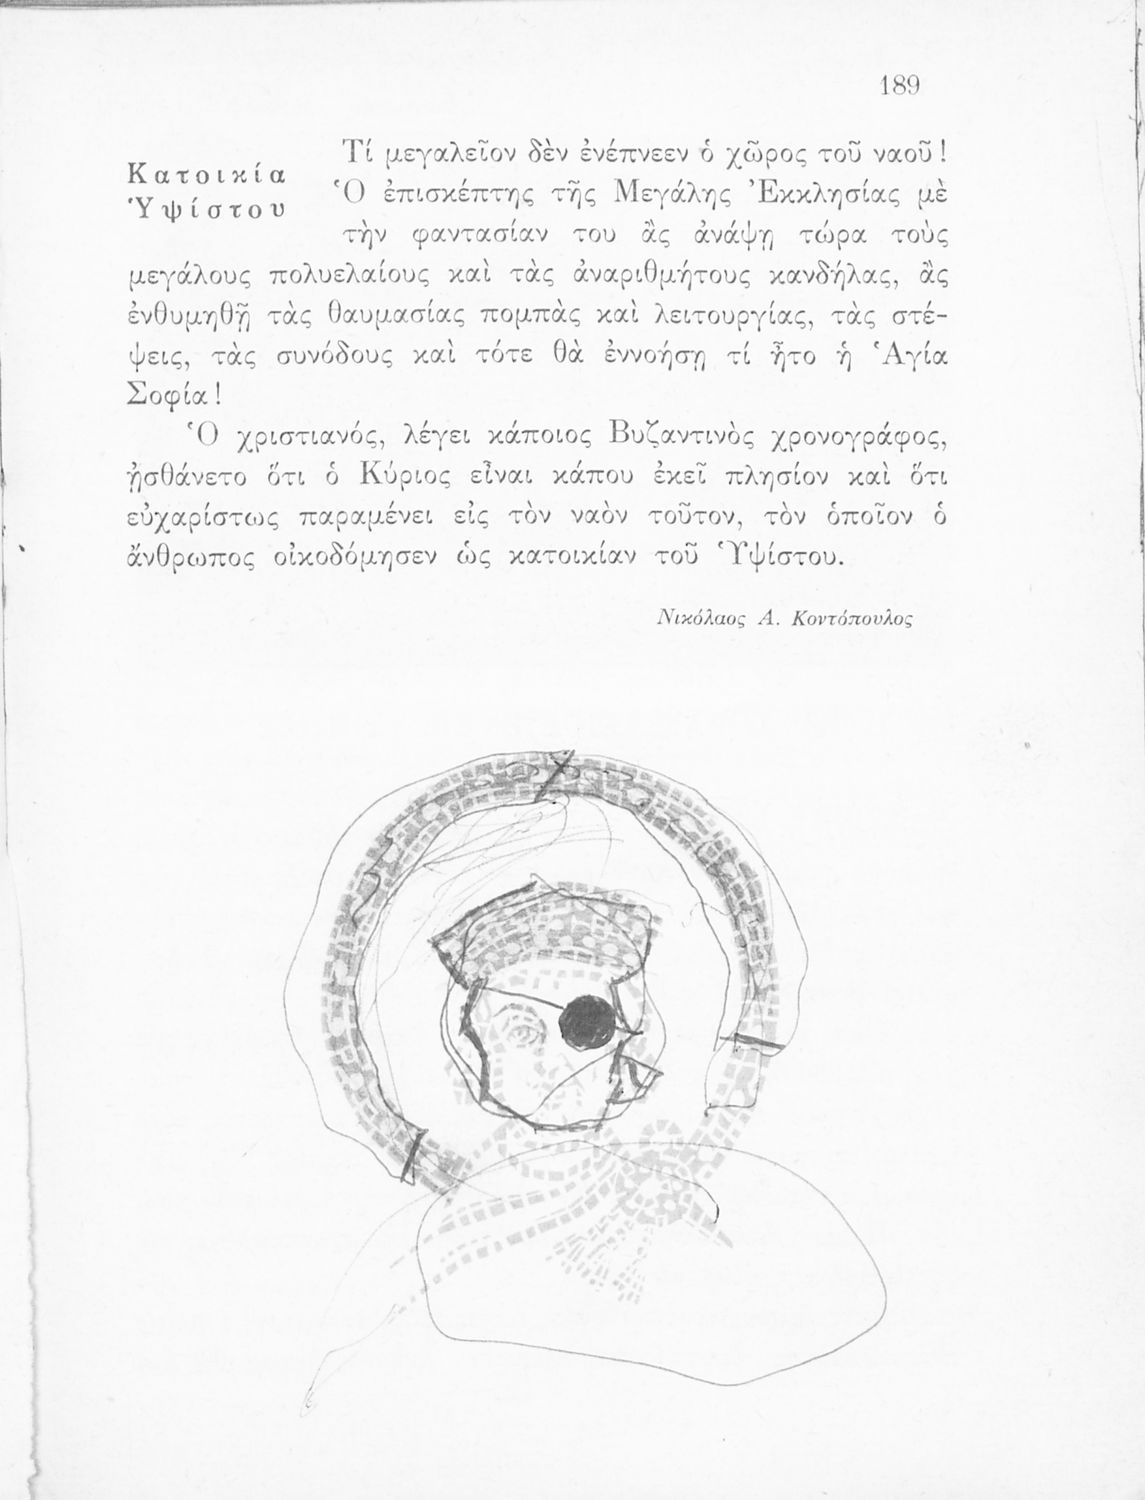 189
Κατοικία
Ὑψίστου
Τί μεγαλεῖον δὲν ἐνέπνεεν ὁ χῶρος τοῦ ναοῦ!
Ὁ ἐπισκέπτης τῆς Μεγάλης Ἐκκλησίας μὲ
τὴν φαντασίαν του ἂς ἀνάψῃ τώρα τοὺς
μεγάλους πολυελαίους καὶ τὰς ἀναριθμήτους κανδήλας, ἂς
ἐνθυμηθῇ τὰς θαυμασίας πομπὰς καὶ λειτουργίας, τὰς στέ-
ψεις, τὰς συνόδους καὶ τότε θὰ ἐννοήσῃ τί ἦτο ἡ Ἁγία
Σοφία!
Ὁ χριστιανός, λέγει κάποιος Βυζαντινὸς χρονογράφος,
ᾐσθάνετο ὅτι ὁ Κύριος εἶναι κάπου ἐκεῖ πλησίον καὶ ὅτι
εὐχαρίστως παραμένει εἰς τὸν ναὸν τοῦτον, τὸν ὁποῖον ὁ
ἄνθρωπος οἰκοδόμησεν ὡς κατοικίαν τοῦ Ὑψίστου.
Νικόλαος Α. Κοντόπουλος